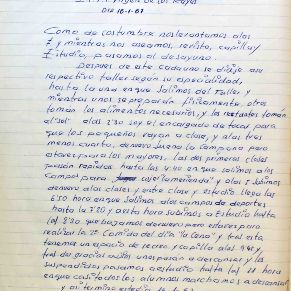 Virgen de los Reyes
DIA 16-1-67
Como de costumbre nos levantamos a las
7 y mientras nos aseamos, revista, capilla y
Estudio, pasamos al desayuno.
Despues de este cada uno se dirije a su
respectivo taller segun su especialidad,
hasta la una en que salimos del Taller y
mientras unos se preparán fisicamente, otros
toman los alimentos necesarios, y los restantes toman
el sol a las 2'30 soy el encargado de tocar para
que los pequeños vayan a clase, y a las tres
menos cuarto, de nuevo suena la campana para
los mayores, las dos primeras clases
hasta las 4,40 en que salimos al
Campo para la merienda y a las 5 subimos
de nuevo a las clases y entre clase y estudio llega las
6'50 hora en que salimos a los campos de deportes
hasta la 7'20 y a esta hora subimos a Estudio hasta
las 8'20 que bajamos de nuevo pero esta vez para
realizar la 2ª Comida del dia "la Cena" y tras esta
tenemos un espacio de recreo y capilla a las 9'45 y
tras dar gracias a unos van para a descansar y los
suspendidos pasamos a estudio hasta las 11 hora
en que casi todos los demás marchamos a descansar
y asi termina